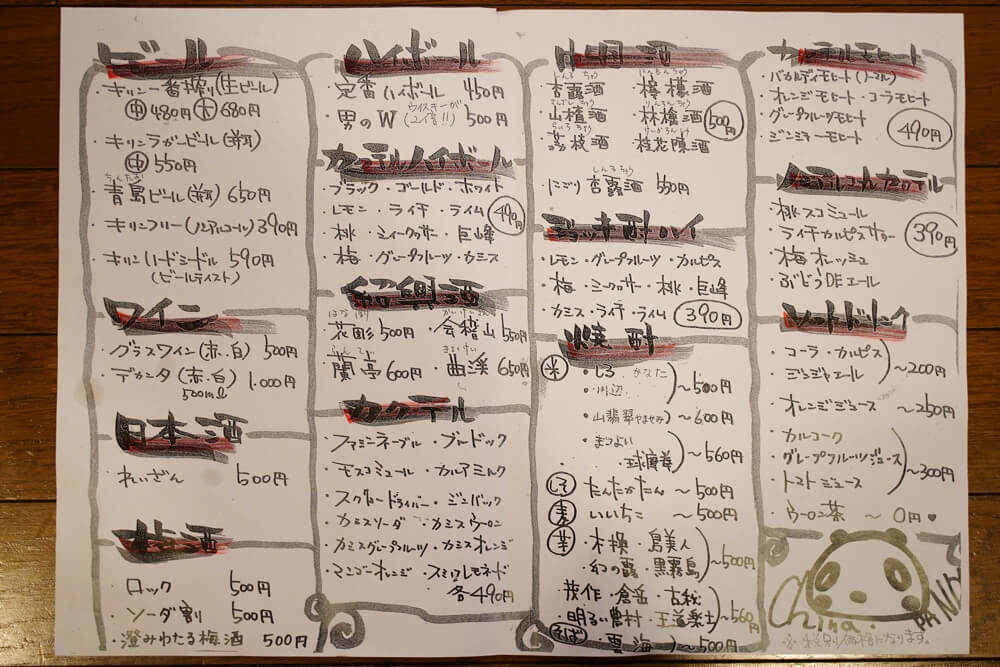 ビール
・キリン一番搾り(生ビール)
中480円 大680円
・キリンラガービール(瓶)
中550円
ちんたお
・青島ビール(瓶) 650円
・キリンフリー(ノンアルコール) 390円
・キリンハードシードル 590円
(ビールテイスト)
ワイン
・グラスワイン(赤・白) 500円
・デカンタ(赤・白) 1.000円
500ml
日本酒
れいざん 500円
梅酒
ロック 500円
・ソーダ割 500円
・澄みわたる梅酒 500円
ハイボール
・定番ハイボール 450円
・男のW ウイスキーが(2倍!!) 500円
カクテルハイボール
・ブラック・ゴールド・ホワイト
・レモン・ライチ・ライム
・桃・シークヮサー・巨峰
・梅・グレープフルーツ・カシス
490円
紹興酒
はなぼり かいけいざん
・花彫 500円 ・会稽山 550円
らんてい
・蘭亭 600円 ・曲渓 650円
カクテル
・ファジーネーブル・ブルドック
・モスコミュール・カルアミルク
・スクリュードライバー・ジンバック
・カシスソーダ・カシスウーロン
・カシスグレープフルーツ・カシスオレンジ
・マンゴーオレンジ・スミノフレモネード
各490円
中国酒
しんるちゅう
・杏露酒 ・檸檬酒
さんざしちゅう りんちんちゅう
・山樝酒 ・林檎酒
らいちちゅう けいかちんしゅ
・茘枝酒 ・桂花陳酒
500円
しんるちゅう
・にごり杏露酒 550円
ジョッキ酎ハイ
・レモン・グレープフルーツ・カルピス
・梅・シークヮサー・桃・巨峰
・カシス・ライチ・ライム 390円
焼酎
米 ・しろ かなた
・川辺 ～500円
・山翡翠 やませみ ～600円
・まつよい
・球磨拳 ～560円
しそ たんたかたん ～500円
麦 いいちこ ～500円
芋 ・木挽・島美人
・幻の露・黒霧島 ～500円
・茂作・倉岳・古秘
・明るい農村・王道楽土 ～560円
そば ・雲海 ～500円
カクテルモヒート
・バカルディモヒート(ノーマル)
・オレンジモヒート・コーラモヒート
・グレープフルーツモヒート
・ジンジャーモヒート
490円
ノンアルコールカクテル
・桃スコミュール
・ライチカルピスサワー
・梅オレッシュ
・ぶどうDEエール
390円
ソフトドリンク
・コーラ・カルピス
・ジンジャエール ～200円
・オレンジジュース ～250円
・カルコーク
・グレープフルーツジュース
・トマトジュース ～300円
・ウーロン茶 ～0円♥
China. PANDA
※税別価格になります。